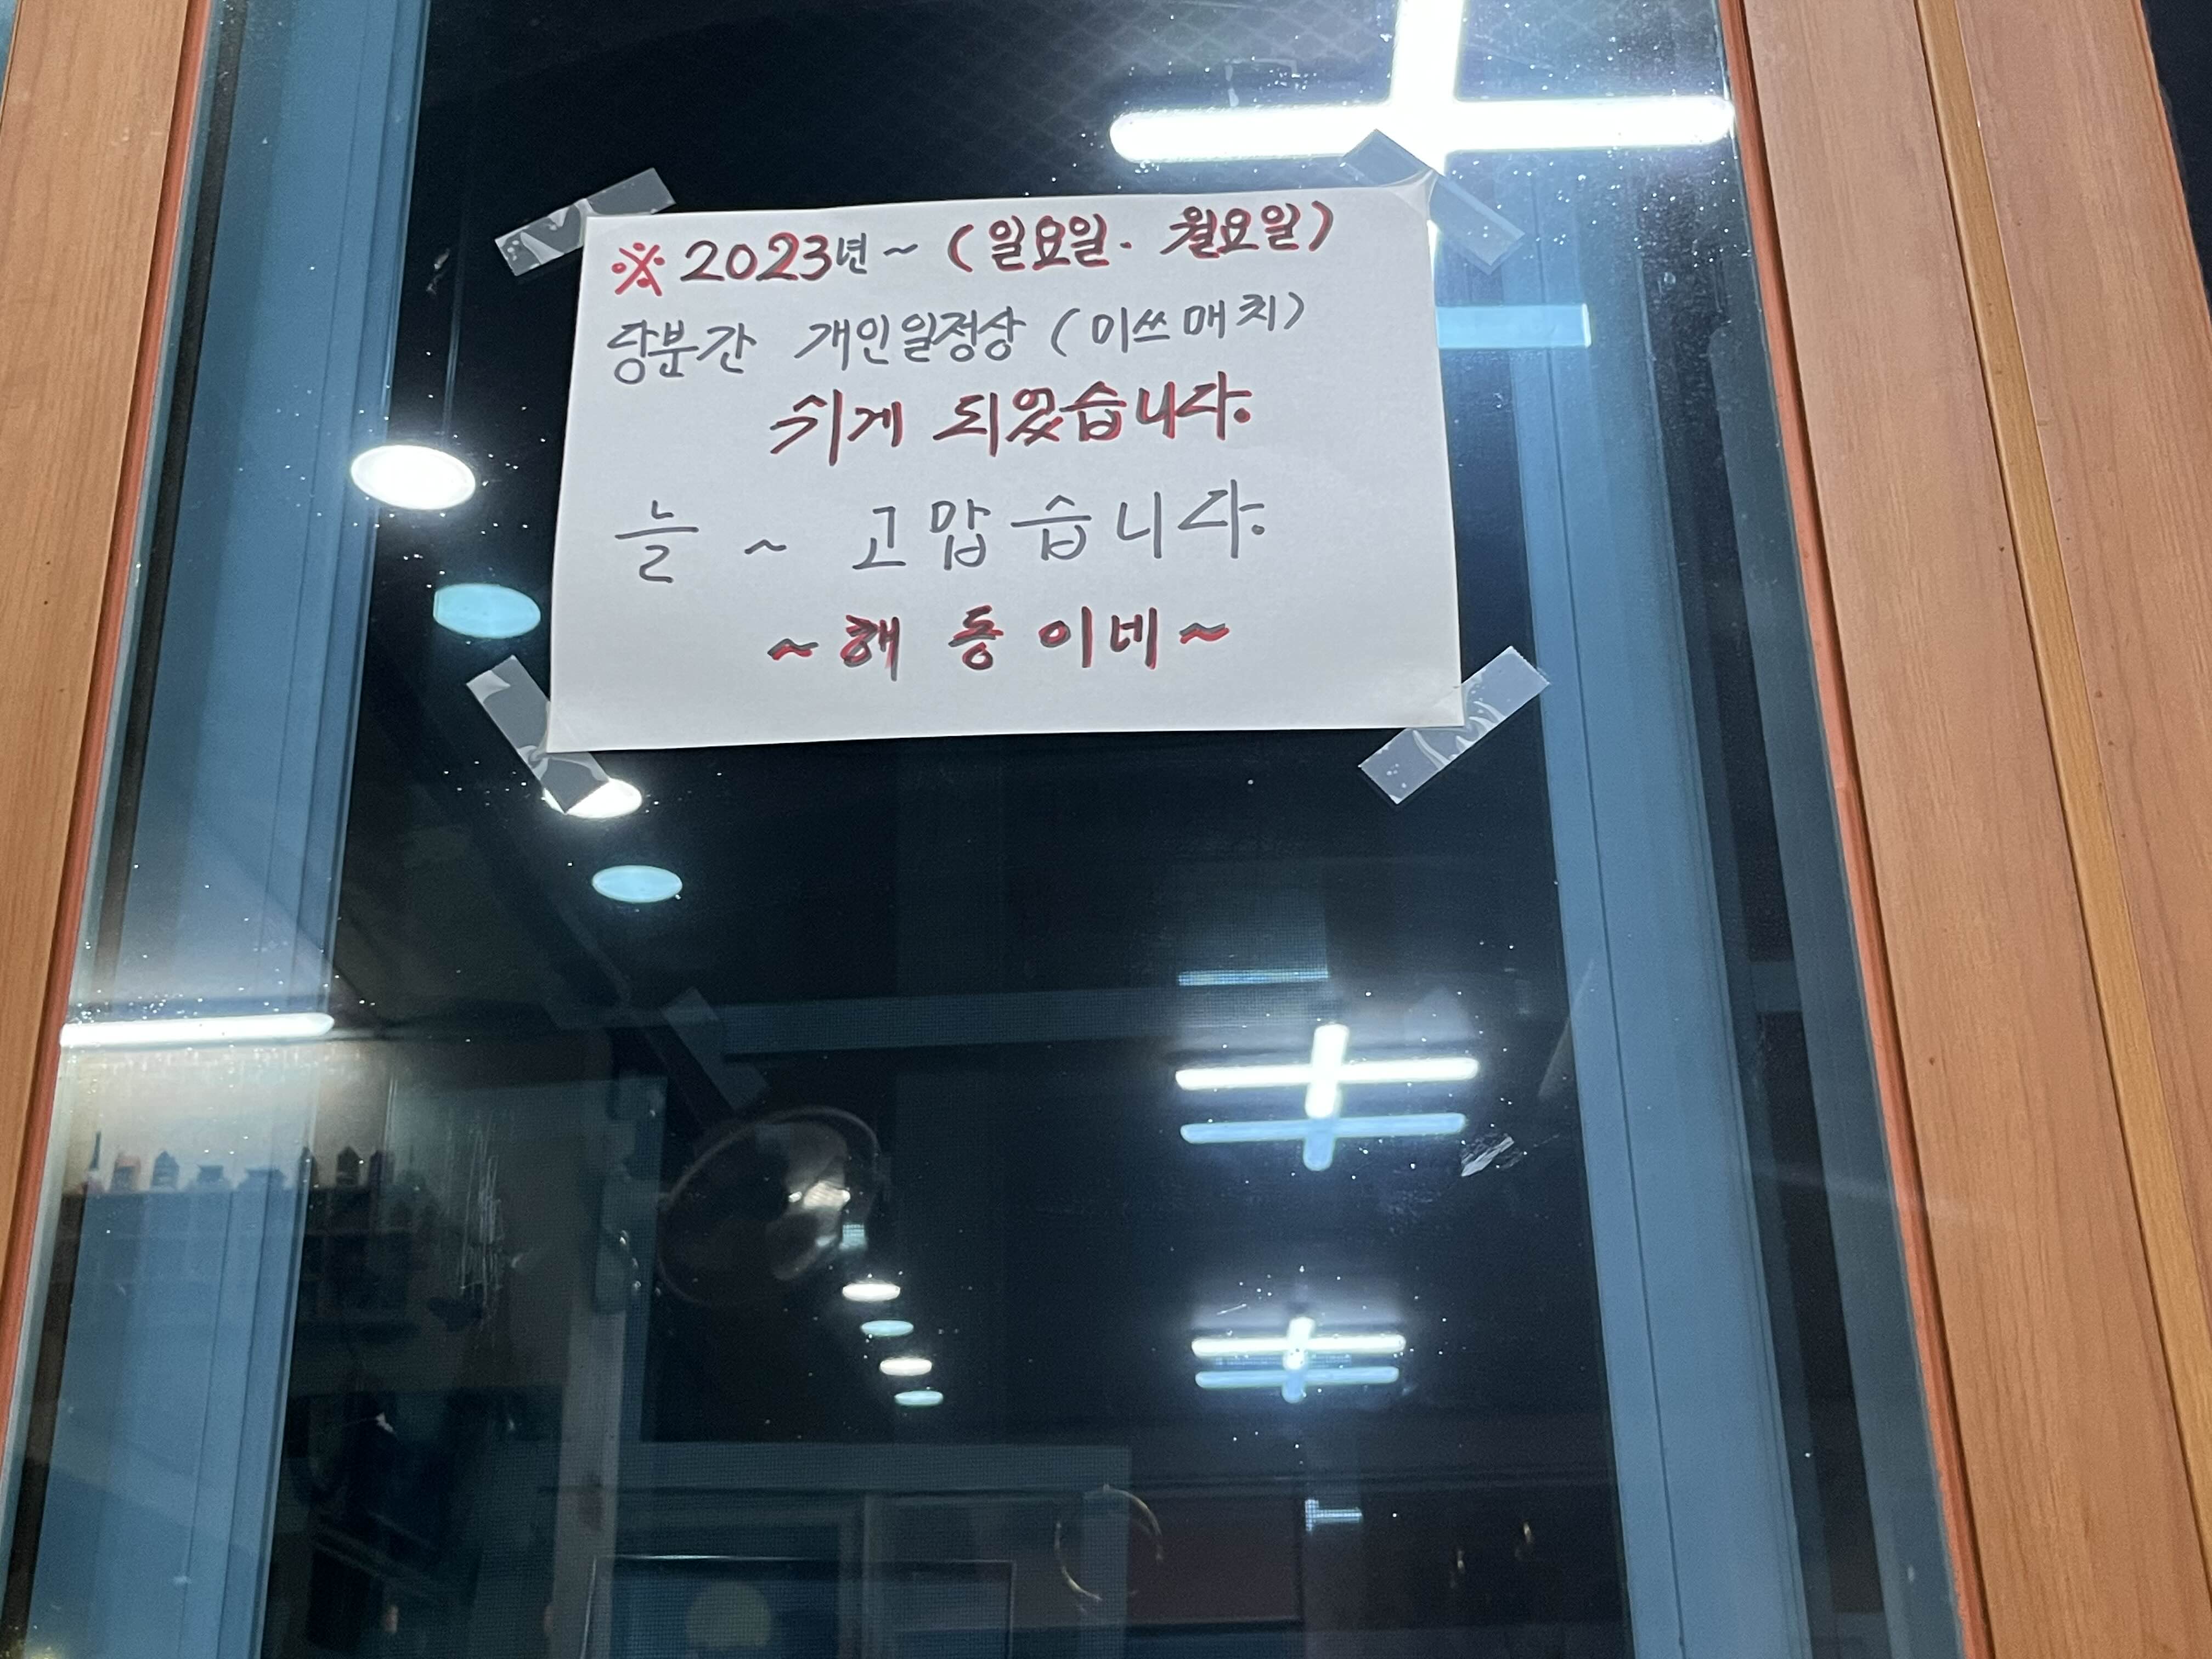 ※ 2023년~ (일요일. 월요일)
당분간 개인일정상 (미쓰매치)
쉬게 되었습니다.
늘 ~ 고맙습니다.
~ 해동이네 ~